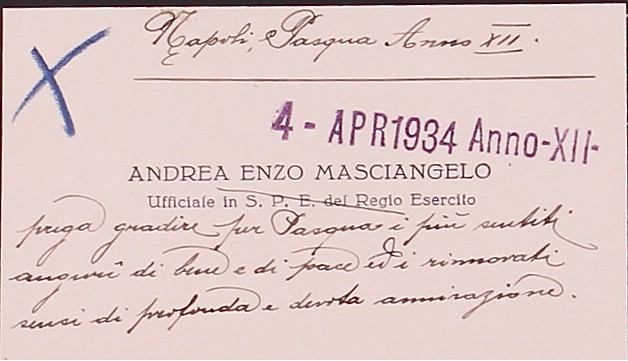 Napoli, Pasqua Anno XII.
4 - APR 1934 Anno-XII-
ANDREA ENZO MASCIANGELO
Ufficiale in S. P. E. del Regio Esercito
prega gradire per Pasqua i più sentiti
auguri di bene e di pace ed i rinnovati
sensi di profonda e devota ammirazione.